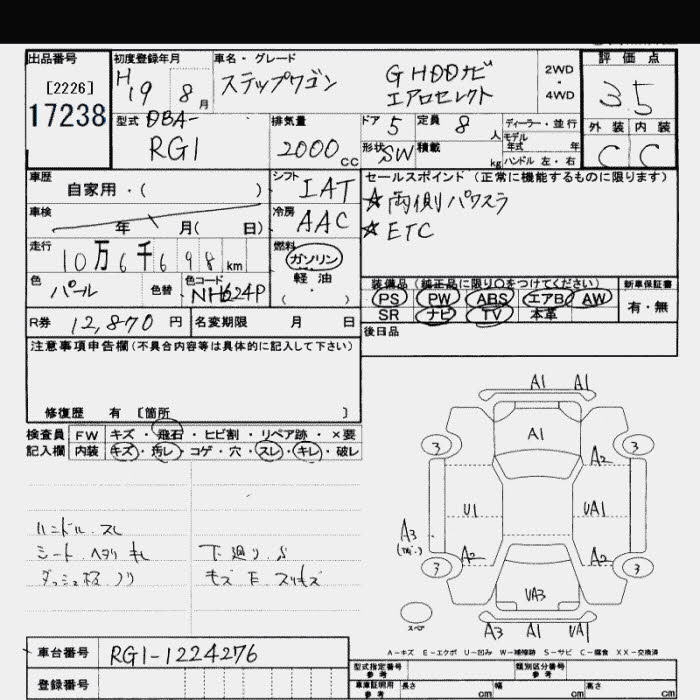 出品番号
[2226]
17238
初度登録年月
H19 8月
車名・グレード
ステップワゴン
G HDDナビ
エアロセレクト
2WD・4WD
評価点
3.5
型式 DBA-
RG1
排気量
2000cc
ドア 5
定員 8人
形状 SW
積載 kg
ディーラー・並行
モデル年式 年
ハンドル 左・右
外装 内装
C C
車歴 自家用・( )
シフト IAT
車検 年 月( 日)
冷房 AAC
セールスポイント (正常に機能するものに限ります)
☆両側パワスラ
☆ETC
走行 10万6千698km
燃料 ガソリン
軽油
( )
色 パール
色替
色コード NH624P
装備品 (純正品に限り○をつけてください)
PS PW ABS エアB AW
SR ナビ TV 本革
新車保証書
有・無
R券 12,870円
名変期限 月 日
後日品
注意事項申告欄(不具合内容等は具体的に記入して下さい)
修復歴 有 [箇所 ]
検査員 FW キズ・飛石・ヒビ割・リペア跡・×要
記入欄 内装 キズ・汚レ・コゲ・穴・スレ・キレ・破レ
ハンドル.スレ
シート.ヘタリ キレ
下廻り.S
キズ E.スリキズ
A1 A1
A1
3 3
A2
U1 UA1
A3
A2 A2
3 3
UA3
スペア
A3 A1 UA1
A-キズ E-エクボ U-凹み W-補修跡 S-サビ C-腐食 XX-交換済
車台番号 RG1-1224276
登録番号
型式指定番号 参考
類別区分番号 参考
車庫証明用 参考
長さ cm 幅 cm 高さ cm